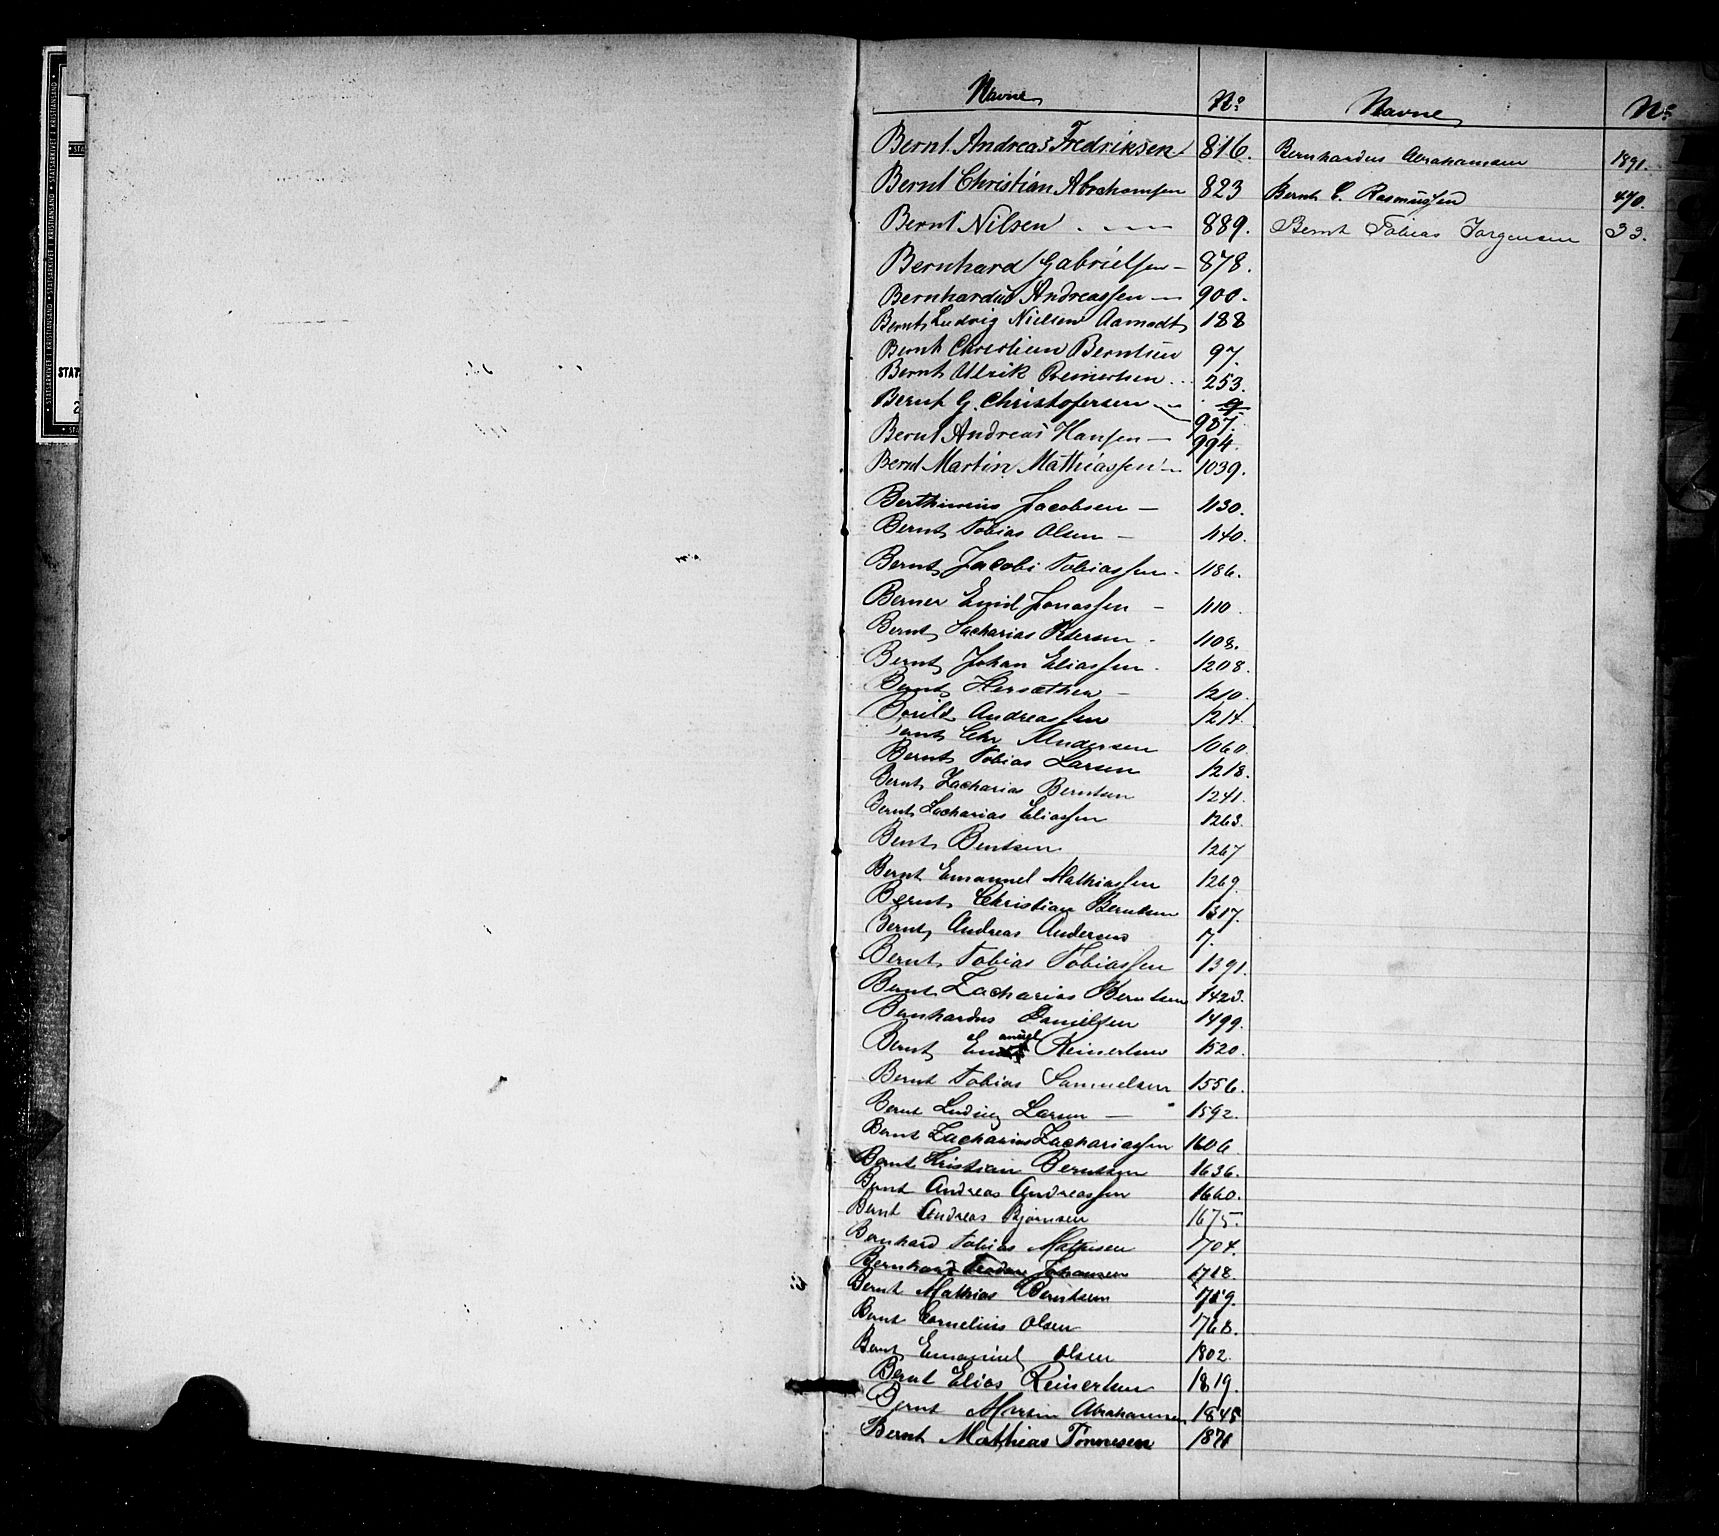 STATSARKIVET I KRISTIANSAND
Navne No Navne No
Bernt Andreas Fredriksen 816.
Bernt Christian Abrahamsen 823
Bernt Nilsen 889.
Bernhard Gabrielsen - 878.
Bernhardus Andreassen - 900.
Bernt Ludvig Nielsen Aamodt 188
Bernt Christian Berntsen 97.
Bernt Ullrik Reinertsen 253.
Bernt G. Christofersen 987.
Bernt Andreas Hansen - 994.
Bernt Martin Mathiassen - 1039.
Jacobsen - 1130.
Bernt Tobias Olsen - 1140.
Bernt Jacobi Tobiassen - 1186.
Berner Emil Jonassen - 1110.
Bernt Zacharias Petersen - 1108.
Bernt Johan Eliassen - 1208.
Bernt - 1210.
Andreassen 1214.
Bernt Chr Andersen 1060.
Bernt Tobias Larsen 1218.
Bernt Zacharias Berntsen 1241.
Bernt Zacharias Eliassen 1263.
Bent Bentsen 1267
Bernt Emanuel Mathiassen 1269.
Bernt Christian Berntsen 1317.
Bernt Andreas Andersen 7.
Bernt Tobias Tobiassen 1391.
Bernt Zacharias Berntsen 1423.
Bernhardus Danielsen 1499.
Bernt Emanuel Reinertsen 1520.
Bernt Tobias Samuelsen 1556.
Bernt Ludvig Larsen - 1592.
Bernt Zacharias Zachariassen 1606
Bernt Kristian Berntsen 1636.
Bernt Andreas Andreassen 1660.
Bernt Andreas Bjørnsen 1675.
Bernhard Tobias Mathisen 1704.
Bernhard Teodor Johansen 1718.
Bernt Mathias Berntsen 1719.
Bernt Cornelius Olsen 1768.
Bernt Emanuel Olsen 1802.
Bernt Elias Reinertsen 1819.
Bernt Martin Abrahamsen 1845
Bernt Mathias Tønnesen 1871
Bernhardus Abrahamsen 1891.
Bernt C. Rasmussen 470.
Bernt Tobias Jørgensen 33.